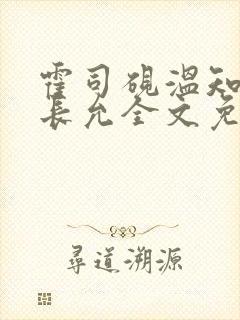 霍司砚温知
长允全文免
尋道溯源